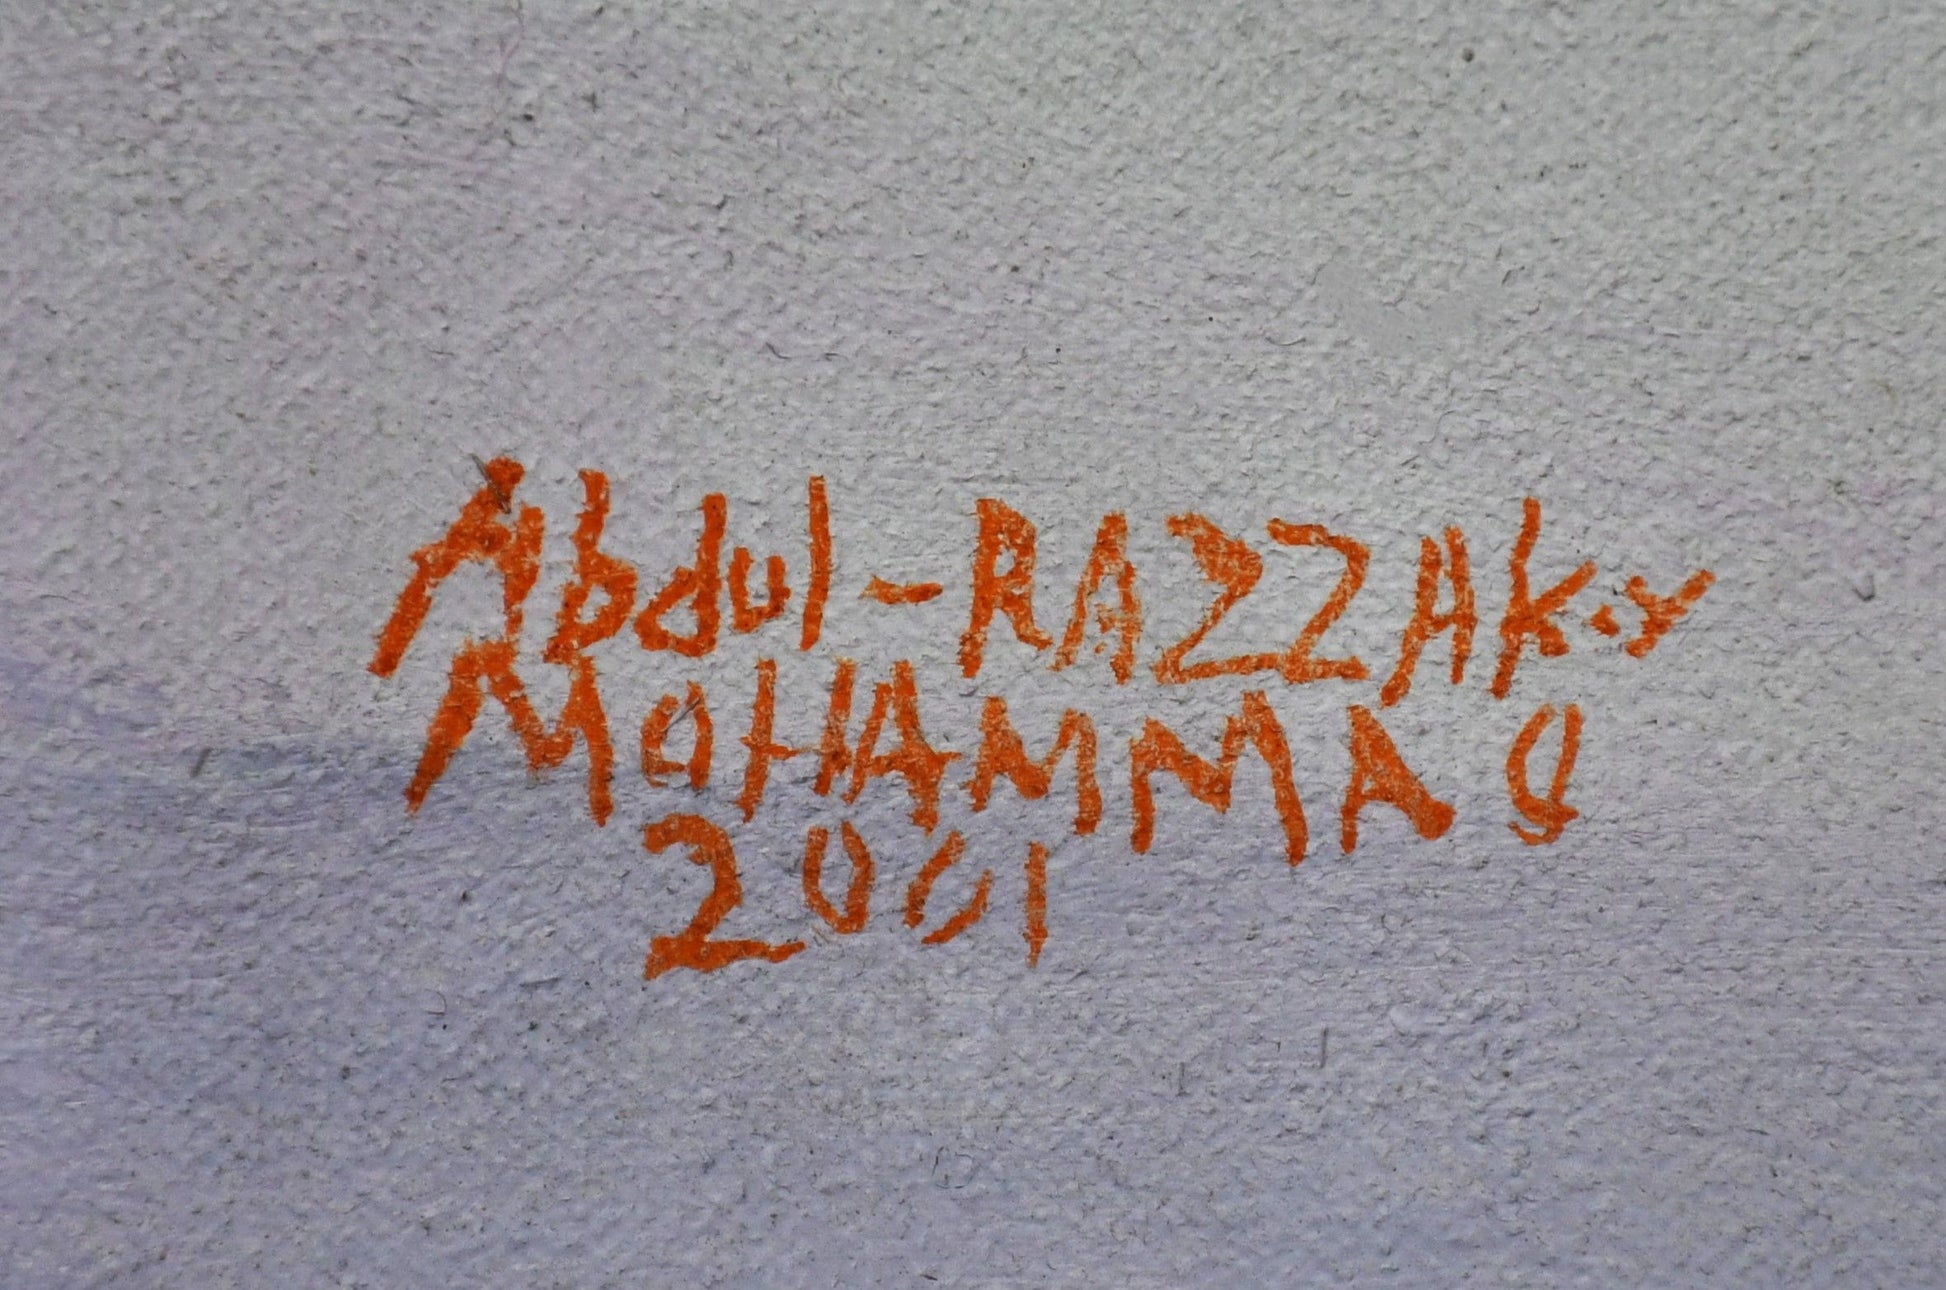 Abdul-RAZZAK.Y
MOHAMMAd
2001